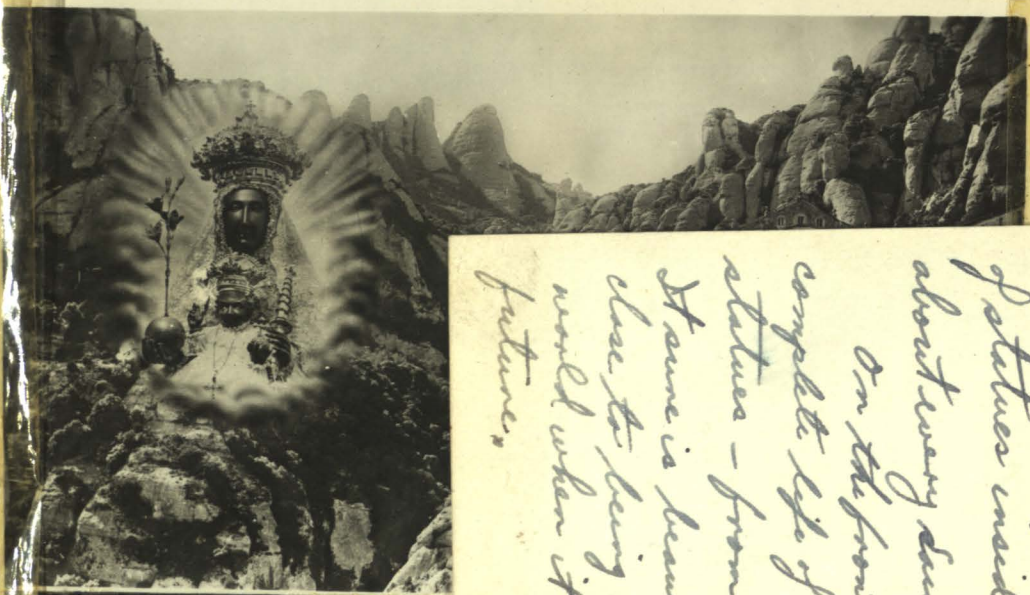 of statues insid
about every Sain
On the fron
complete life of
statues – from
It sure is beau
close to being
world when it
future.